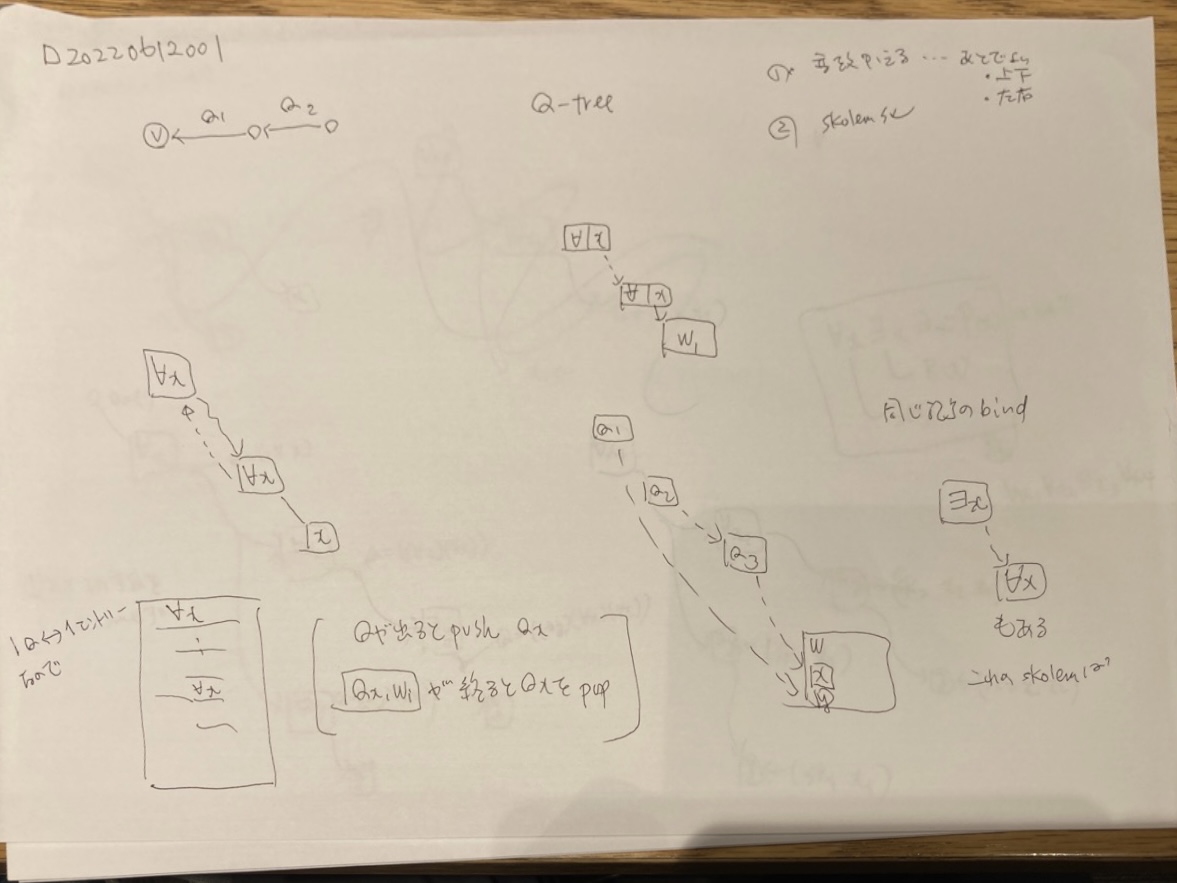 D20220612001
Q1
Q2
V
Q-tree
① … あとで
・上下
・左右
② skolem
∀ x
∀ x
W1
∀x
∀x
x
Q1
Q2
Q3
W
x
y
同じ記号のbind
∃x
∀x
もある
これは skolem
なので
∀x
∀x
Qが出るとpush Qx
Qx,W1 が終るとQxをpop